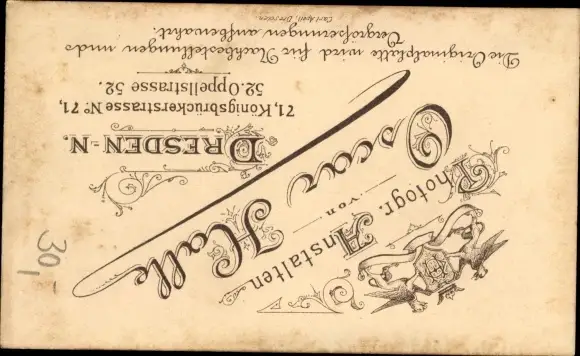 Photogr. Anstalten
von
Oscar Halle
DRESDEN-N.
71, Königsbrückerstrasse No 71,
52. Oppellstrasse 52.
Die Originalplatte wird für Nachbestellungen und
Vergrößerungen aufbewahrt.
Carl April, Dresden.
301